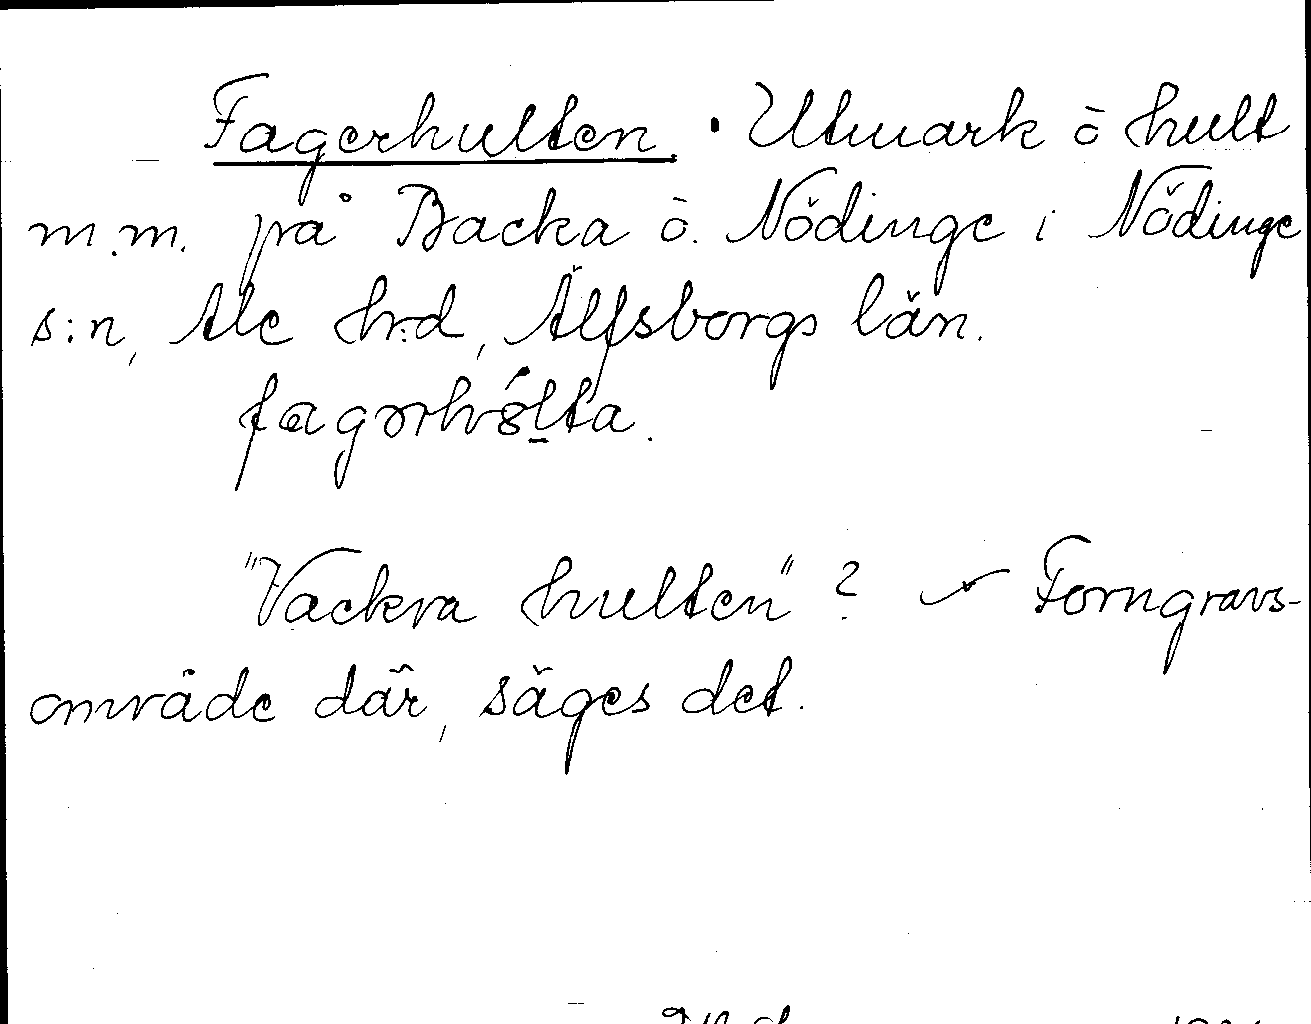 Fagerhulten. Utmark ò hult
m.m. på Backa ò. Nödinge i Nödinge
s:n, Ale hrd, Älfsborgs län.
"Vackra hulten"? Forngravs-
område där, säges det.